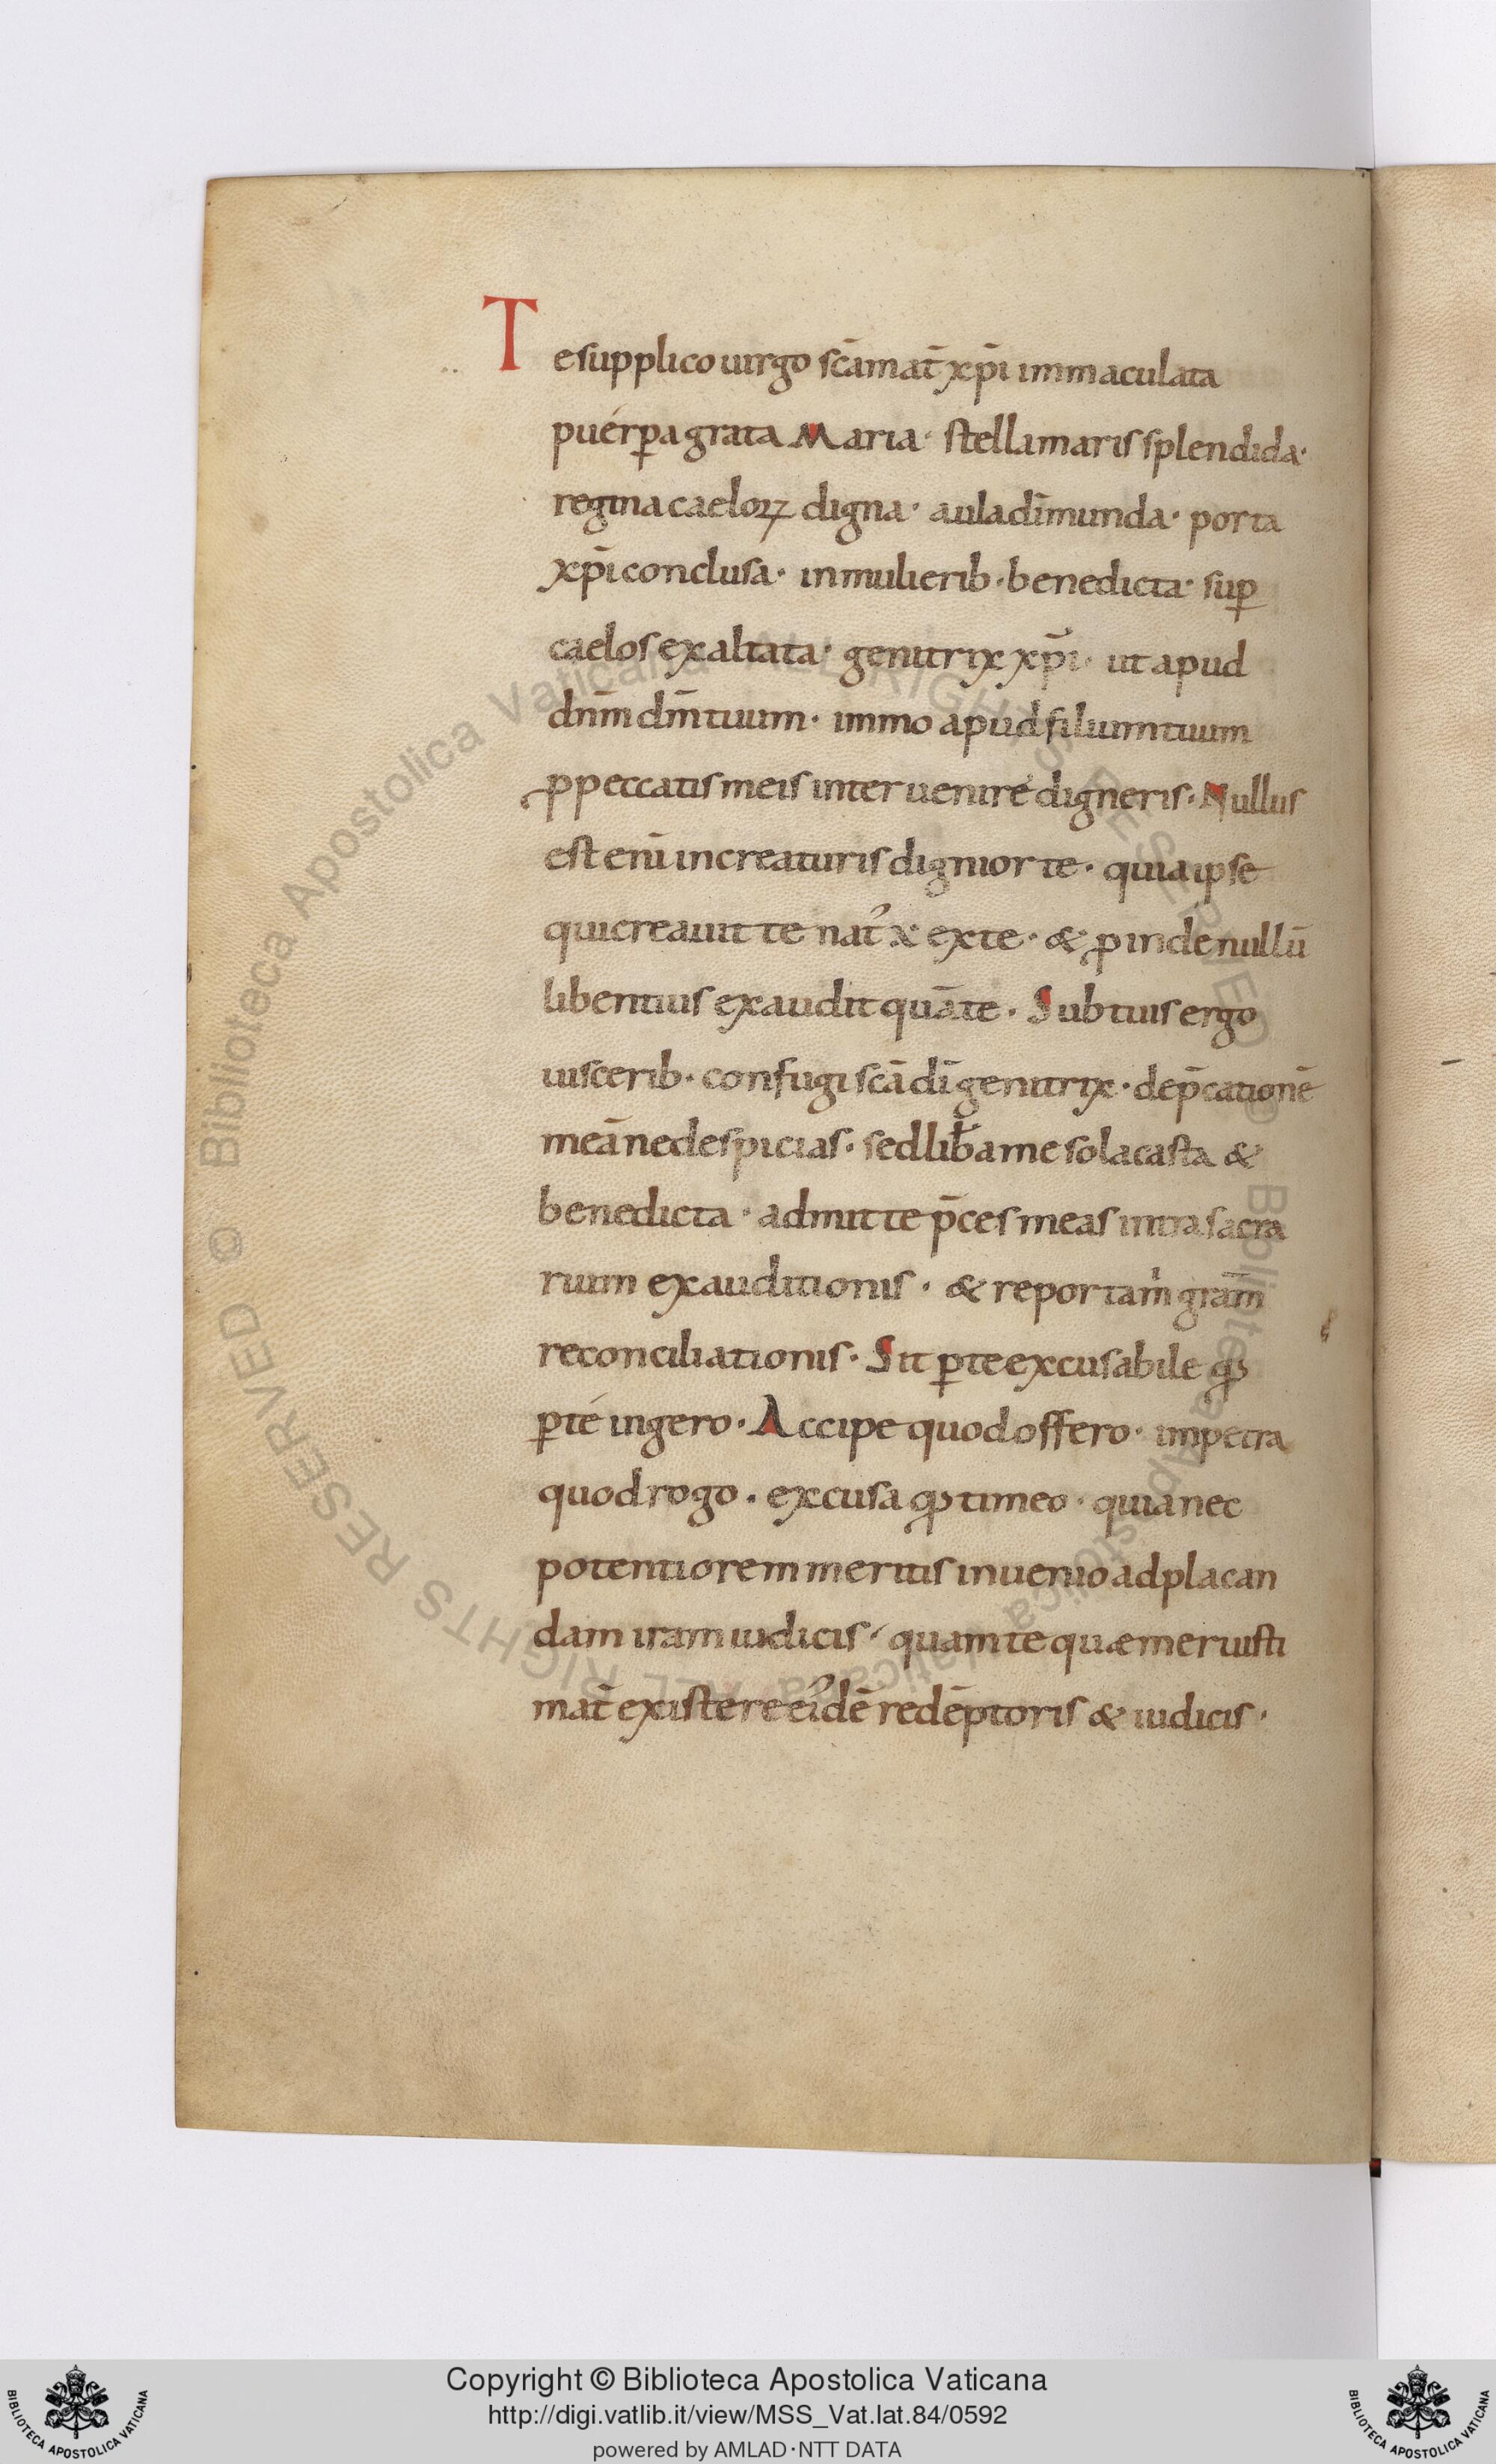 Te supplico uirgo sc̄a mat̄ xp̄i immaculata
puérꝑa grata Maria· stella maris splendida·
regina caeloꝝ digna· aula dī munda· porta
xp̄i conclusa· in mulierib· benedicta· suꝑ
caelos exaltata· genitrix xp̄i· ut apud
dn̄m dm̄ tuum· immo apud filium tuum
ꝓ peccatis meis interuenire digneris· Nullus
est eni̅ in creaturis dignior te· quia ipse
qui creauit te nat᾿ x̄ ex te· & ꝓinde nullū
libentius exaudit quā te· Sub tuis ergo
uiscerib· confugi sc̄a dī genitrix· dep̄cationē
meā ne despicias· sed lib̄a me sola casta &
benedicta· admitte p̄ces meas intra sacra
rium exauditionis· & reporta m̍ gram̄
reconciliationis· Sit ꝑ te excusabile qd̄
ꝑ té ingero· Accipe quod offero· impetra
quod rogo· excusa qd̄ timeo· quia nec
potentiorem meritis inuenio ad placan
dam iram iudicis· quam te quæ meruisti
mat̄ existere ei᾿dē redēptoris & iudicis·
© Biblioteca Apostolica Vaticana ALL RIGHTS RESERVED © Biblioteca Apostolica Vaticana ALL RIGHTS RESERVED
BIBLIOTECA APOSTOLICA VATICANA
Copyright © Biblioteca Apostolica Vaticana
http://digi.vatlib.it/view/MSS_Vat.lat.84/0592
powered by AMLAD·NTT DATA
BIBLIOTECA APOSTOLICA VATICANA